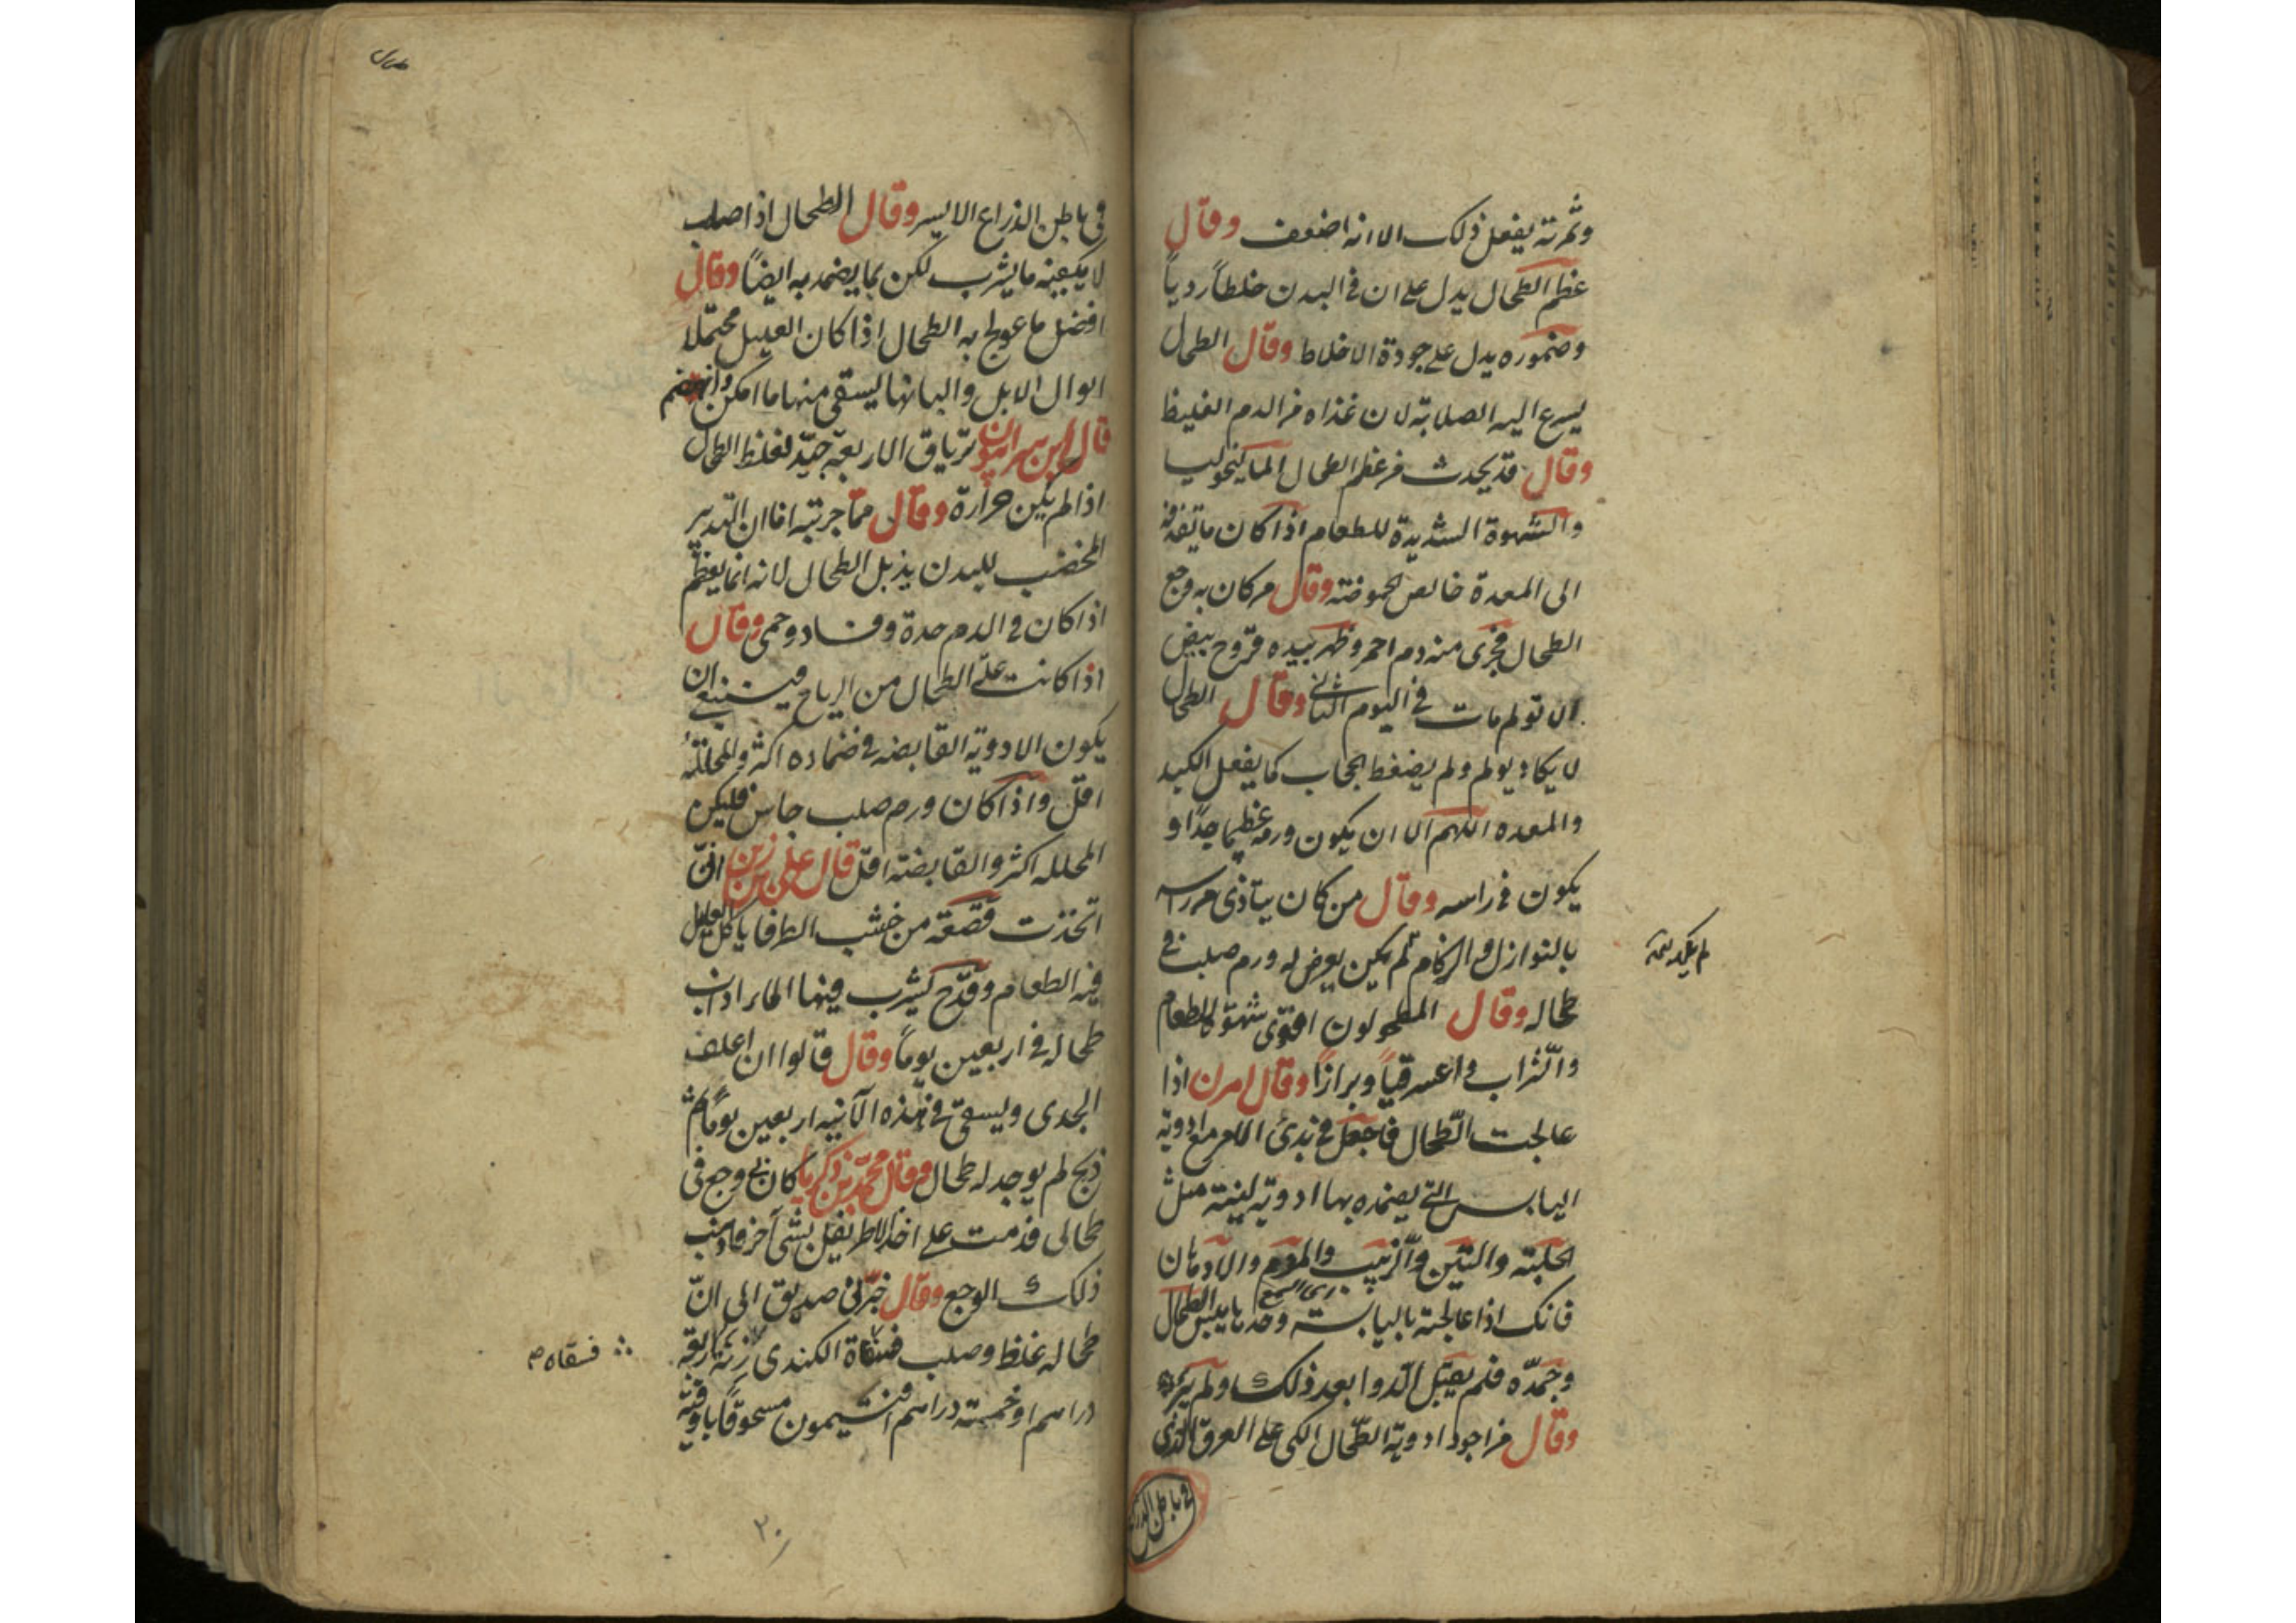 وثمرته يفعل ذلك الا انه اضعف وقال
عظم الطحال يدل على ان في البدن خلطاً ردياً
وضموره يدل على جودة الاخلاط وقال الطحال
يسرع اليه الصلابة لان غذاه من الدم الغليظ
وقال قد يحدث من عظم الطحال الماليخوليا
والشهوة الشديدة للطعام اذا كان ما يقذفه
الى المعدة خالص لحموضته وقال من كان به وجع
الطحال فجرى منه دم احمر وظهر بيده قروح بيض
لا تولم مات في اليوم الثاني وقال الطحال
لا يكاد يولم ولم يضغط الحجاب كما يفعل الكبد
والمعده اللهم الا ان يكون ورمه عظيما جدا و
يكون في راسه وقال من كان يتاذى من راسه
بالنوازل والزكام لم يكن يعرض له ورم صلب في
طحاله وقال المطحولون اقوى شهوة للطعام
والشراب واعسر قياً وبرازاً وقال اهرن اذا
عالجت الطحال فاجعل في بدئ الامر مع ادوية
اليابس التي يضمده بها ادوية لينة مثل
الحلبة والتين والزبيب والموم والادهان
فانك اذا عالجته باليابسة وحدها يبس الطحال
وجمده فلم يقبل الدوا بعد ذلك ولم يبرء
وقال من اجود ادوية الطحال الكى على العرق الذي
في باطن الذراع
في باطن الذراع الايسر وقال الطحال اذا صلب
لا يكفيه ما يشرب لكن بما يضمد به ايضاً وقال
افضل ما عولج به الطحال اذا كان العليل محتملا
ابوال الابل والبانها يسقى منها ما امكن وانهضم
قال ابن سرابيون ترياق الاربعة جيد لغلظ الطحال
اذا لم يكن حرارة وقال مما جربته انا ان التدبير
المخصب للبدن يذبل الطحال لانه انما يعظم
اذا كان في الدم حدة وفساد وحمى وقال
اذا كانت علة الطحال من الرياح فينبغي ان
يكون الادوية القابضه في ضماده اكثر والمحللة
اقل واذا كان ورم صلب جاس فليكن
المحلله اكثر والقابضة اقل قال علي بن زين ان
اتخذت قصعة من خشب الطرفا ياكل العليل
فيه الطعام وقدح يشرب فيها الماء اذاب
طحاله في اربعين يوماً وقال قالوا ان اعلف
الجدى ويسقى في هذه الآنيه اربعين يوماً ثم
ذبح لم يوجد له طحال وقال محمد بن زكريا كان بي وجع في
طحالى فدمت على اخذ الاطريفل بشئ آخر فاذهب
ذلك الوجع وقال خبرني صديق الى ان
طحاله غلظ وصلب فسقاه الكندى زنة اربعة
دراهم او خمسة دراهم افتيمون مسحوقاً باوقية
فسقاه م
٢٠